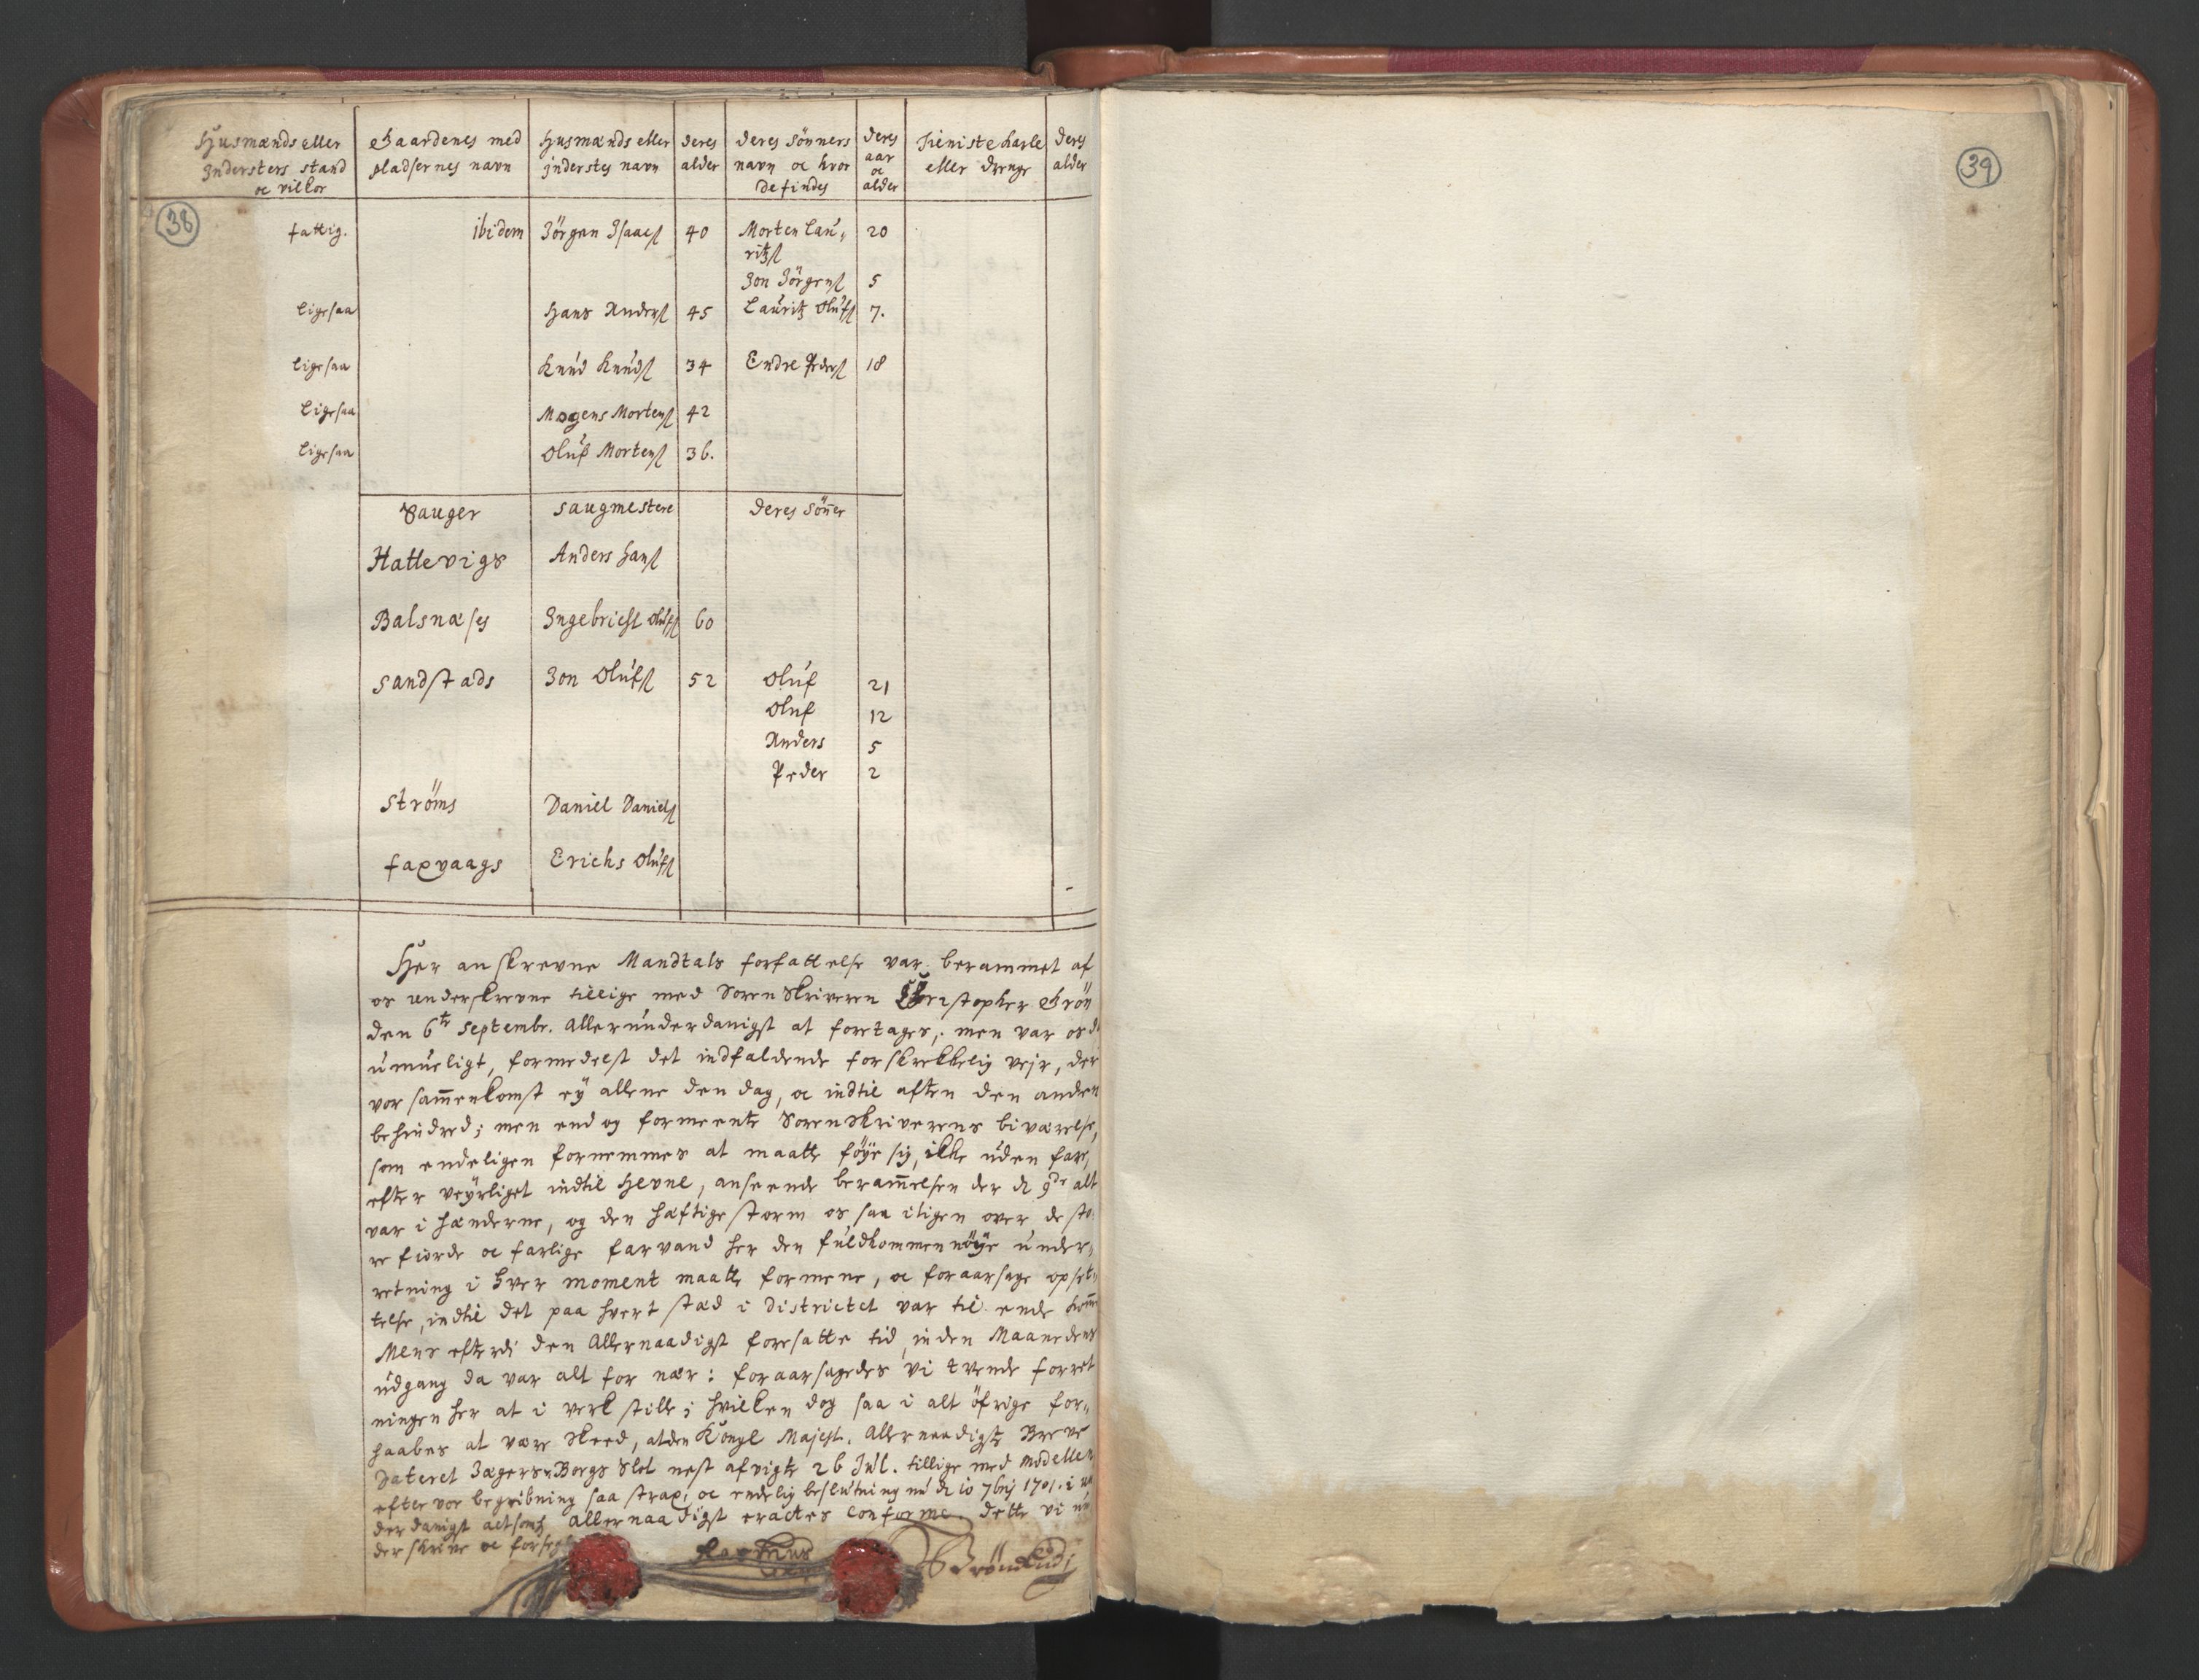 Husmænds eller Indersters stand oc vilkor | Gaardenes med pladsernes navn | Husmænds eller jnderstes navn | deres alder | deres Sönners navn oc hvor de findes | deres aar oc alder | Tieniste karle eller drenge | deres alder
38
39
fattig. ibidem Jörgen Isaacs. 40 Morten Lau- 20
ritzs.
Jon Jörgens. 5
Ligesaa Hans Anders. 45 Lauritz Olufs. 7.
Ligesaa Knud Knuds. 34 Endre Peders. 18
Ligesaa Mogens Mortens. 42
Ligesaa Oluf Mortens. 36.
Sauger saugmestere deres Söner
Hattevigs Anders Hans.
Balsnæses Ingebricht Olufs. 60
Sandstads Jon Olufs. 52 Oluf 21
Oluf 12
Anders 5
Peder 2
Ströms Daniel Daniels.
faxvaags Erichs Olufs.
Her anskrevne Mandtals forfattelse var berammet af
os underskrevne tillige med Sorenskriveren Christopher Grön
den 6te Septembr. Allerunderdanigst at foretages; men var os d
umueligt, formedelst det indfaldende forskrekkelig vejr, der
vor sammenkomst ey allene den dag, oc indtil aften den anden
behindred; men end og formeente Sorenskriverens biværelse,
som endeligen fornemmes at maatte föye sig, ikke uden fare,
efter veyrliget indtil Hevne, anseende berammelsen der d 9de alt
var i hænderne, og den hæftige storm os saa iligen over de sto-
re fiorde oc farlige farvand her den fuldkommen nöye under-
retning i hver moment maatte formene, oc foraarsage opset-
telse, indtil det paa hvert stæd i districtet var til ende komm
Mens efterdi den Allernaadigst foresatte tid, inden Maanedens
udgang da var alt for nær: foraarsagedes vi tvende forret
ningen her at i verk stille; hvilken dog saa i alt öfrige for-
haabes at være skeed, at den Kongl Majest. Allernaadigste Breve
Dateret Jægersborgs Slot nest afvigte 26 Jul. tillige med modellen
efter vor begribning saa strax, oc endelig beslutning nu d 10 7brj 1701. i un
derdanigst actsomh allernaadigst eractes conforme. dette vi un
derskrive oc forsegl